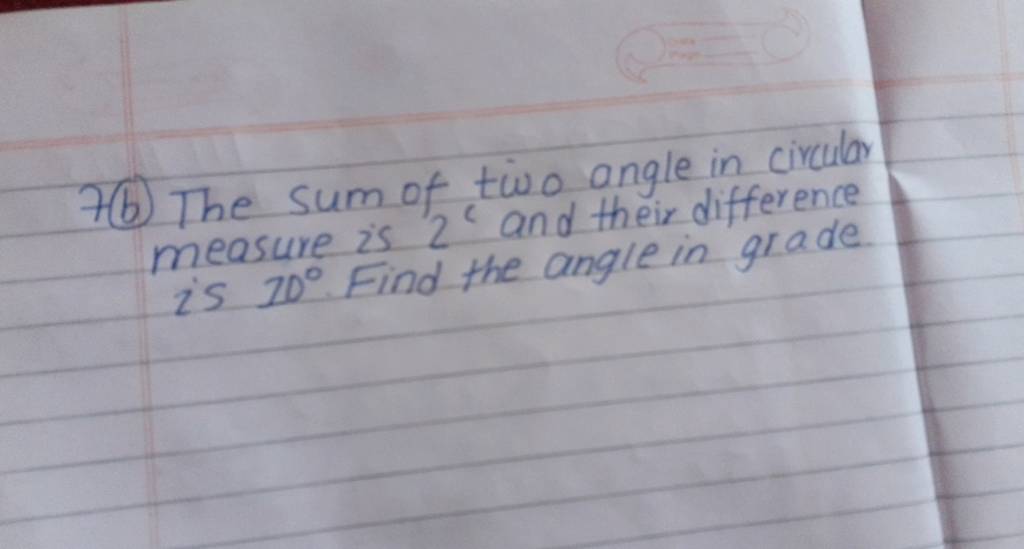 7(b) The sum of two angle in circular
measure is 2ᶜ and their difference
is 10°. Find the angle in grade